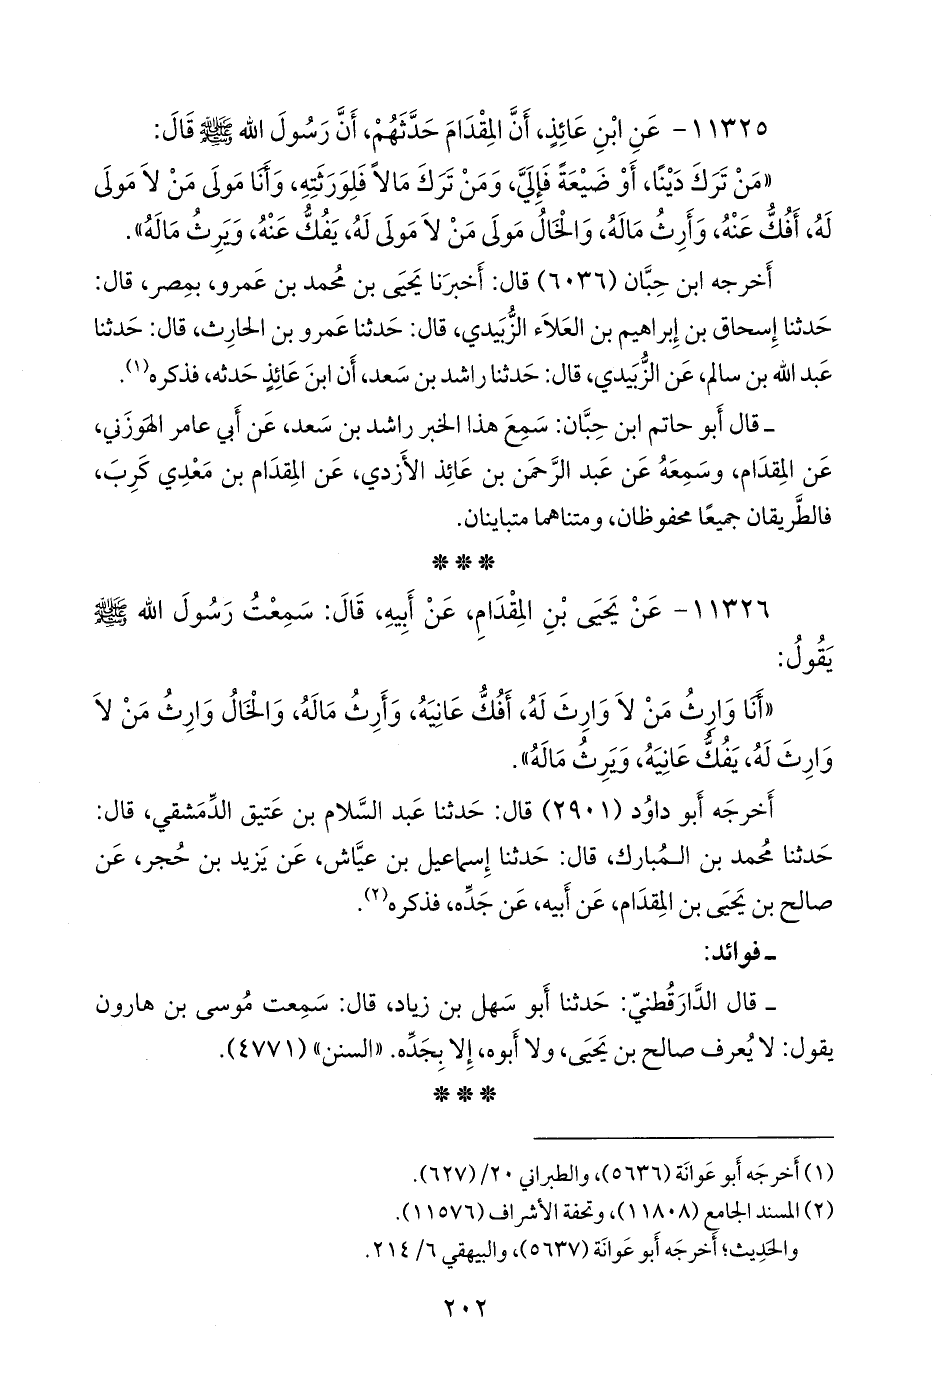 ١١٣٢٥- عَنِ ابْنِ عَائِذٍ، أَنَّ المِقْدَامَ حَدَّثَهُمْ، أَنَّ رَسُولَ الله ﷺ قَالَ:
«مَنْ تَرَكَ دَيْنًا، أَوْ ضَيْعَةً فَإِلَيَّ، وَمَنْ تَرَكَ مَالاً فَلِوَرَثَتِهِ، وَأَنَا مَولَى مَنْ لاَ مَولَى
لَهُ، أَفُكُّ عَنْهُ، وَأَرِثُ مَالَهُ، وَالْخَالُ مَولَى مَنْ لاَ مَولَى لَهُ، يَفُكُّ عَنْهُ، وَيَرِثُ مَالَهُ».
أَخرجه ابن حِبَّان (٦٠٣٦) قال: أَخبرَنا يَحيَى بن مُحمد بن عَمرو، بمِصر، قال:
حَدثنا إِسحاق بن إِبراهيم بن العَلاَء الزُّبَيدي، قال: حَدثنا عَمرو بن الحارِث، قال: حَدثنا
عَبد الله بن سالم، عَن الزُّبَيدي، قال: حَدثنا راشد بن سَعد، أَن ابنَ عَائِذٍ حَدثه، فذكره(١).
ـ قال أَبو حاتم ابن حِبَّان: سَمِعَ هذا الخبر راشد بن سَعد، عَن أَبي عامر الهَوزَني،
عَن المِقدَام، وسَمِعَهُ عَن عَبد الرَّحمَن بن عَائذ الأَزدي، عَن المِقدَام بن مَعْدِي كَرِبَ،
فالطَّريقان جميعًا محفوظان، ومتناهما متباينان.
* * *
١١٣٢٦- عَنْ يَحيَى بْنِ المِقْدَامِ، عَنْ أَبِيهِ، قَالَ: سَمِعْتُ رَسُولَ الله ﷺ
يَقُولُ:
«أَنَا وَارِثُ مَنْ لاَ وَارِثَ لَهُ، أَفُكُّ عَانِيَهُ، وَأَرِثُ مَالَهُ، وَالْخَالُ وَارِثُ مَنْ لاَ
وَارِثَ لَهُ، يَفُكُّ عَانِيَهُ، وَيَرِثُ مَالَهُ».
أَخرجَه أَبو داوُد (٢٩٠١) قال: حَدثنا عَبد السَّلام بن عَتيق الدِّمَشقي، قال:
حَدثنا مُحمد بن الـمُبارك، قال: حَدثنا إِسماعيل بن عيَّاش، عَن يَزيد بن حُجر، عَن
صالح بن يَحيَى بن المِقدَام، عَن أَبيه، عَن جَدِّه، فذكره(٢).
ـ فوائد:
ـ قال الدَّارَقُطنيّ: حَدثنا أَبو سَهل بن زياد، قال: سَمِعت مُوسى بن هارون
يقول: لا يُعرف صالح بن يَحيَى، ولا أَبوه، إِلا بِجَدِّه. «السنن» (٤٧٧١).
* * *
(١) أَخرجَه أَبو عَوانَة (٥٦٣٦)، والطبراني ٢٠/ (٦٢٧).
(٢) المسند الجامع (١١٨٠٨)، وتحفة الأَشراف (١١٥٧٦).
والحَدِيث؛ أَخرجَه أَبو عَوانَة (٥٦٣٧)، والبيهقي ٦/ ٢١٤.
٢٠٢